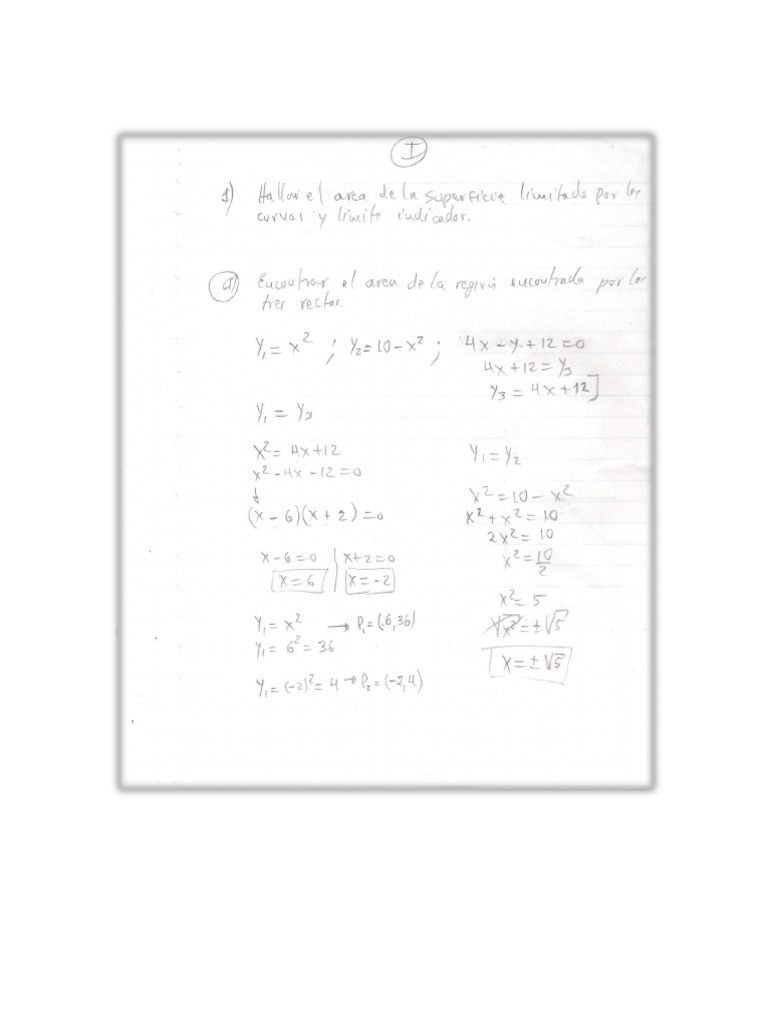 I
1) Hallar el area de la superficie limitada por las
curvas y limite indicados.
a) Encontrar el area de la region encontrada por las
tres rectas.
Y₁ = x² ; Y₂ = 10 - x² ; 4x - y + 12 = 0
4x + 12 = Y₃
Y₃ = 4x + 12]
Y₁ = Y₃
x² = 4x + 12
x² - 4x - 12 = 0
↓
(x - 6)(x + 2) = 0
x - 6 = 0 | x + 2 = 0
x = 6 | x = -2
Y₁ = x² → P₁ = (6, 36)
Y₁ = 6² = 36
Y₁ = (-2)² = 4 → P₂ = (-2, 4)
Y₁ = Y₂
x² = 10 - x²
x² + x² = 10
2x² = 10
x² = 10/2
x² = 5
√x² = ±√5
x = ±√5